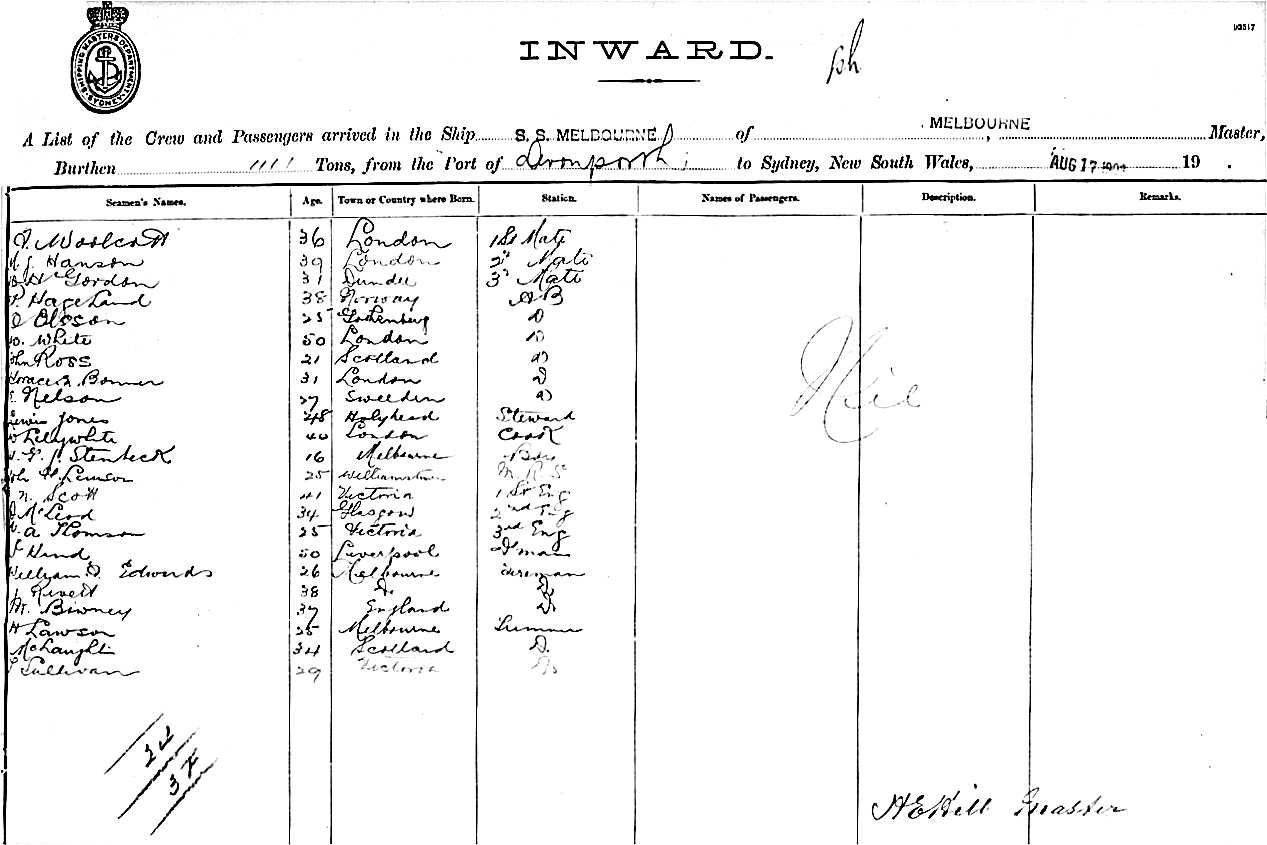 SHIPPING MASTERS DEPARTMENT SYDNEY
INWARD.
A List of the Crew and Passengers arrived in the Ship S. S. MELBOURNE of MELBOURNE, Master,
Burthen 1111 Tons, from the Port of Devonport to Sydney, New South Wales, AUG 17 19 .
Seamen's Names. Age. Town or Country where Born. Station. Names of Passengers. Description. Remarks.
Woolcott 36 London 1st Mate
Hanson 39 London 2d Mate
Gordon 31 Dundee 3d Mate
P. Hageland 38 Norway AB
Olsson 25 Gothenberg D
W. White 50 London D
John Ross 21 Scotland D
Horace Bonner 31 London D
Nelson 27 Sweeden D
Lewis Jones 48 Holyhead Steward
W Lillywhite 40 London Cook
Stenbeck 16 Melbourne Boy
John 25 Williamstown M. R. S
N. Scott 41 Victoria 1st Eng
McLeod 34 Glasgow 2nd Eng
A Thomson 25 Victoria 3rd Eng
Hand 50 Liverpool D'man
William D. Edwards 26 Melbourne Fireman
J Rivett 38 D. D
Wm. Binney 37 England D
H Lawson 25 Melbourne Trimmer
McLaughli 34 Scotland D.
Sullivan 29 Victoria D
Nil
H E Hill Master